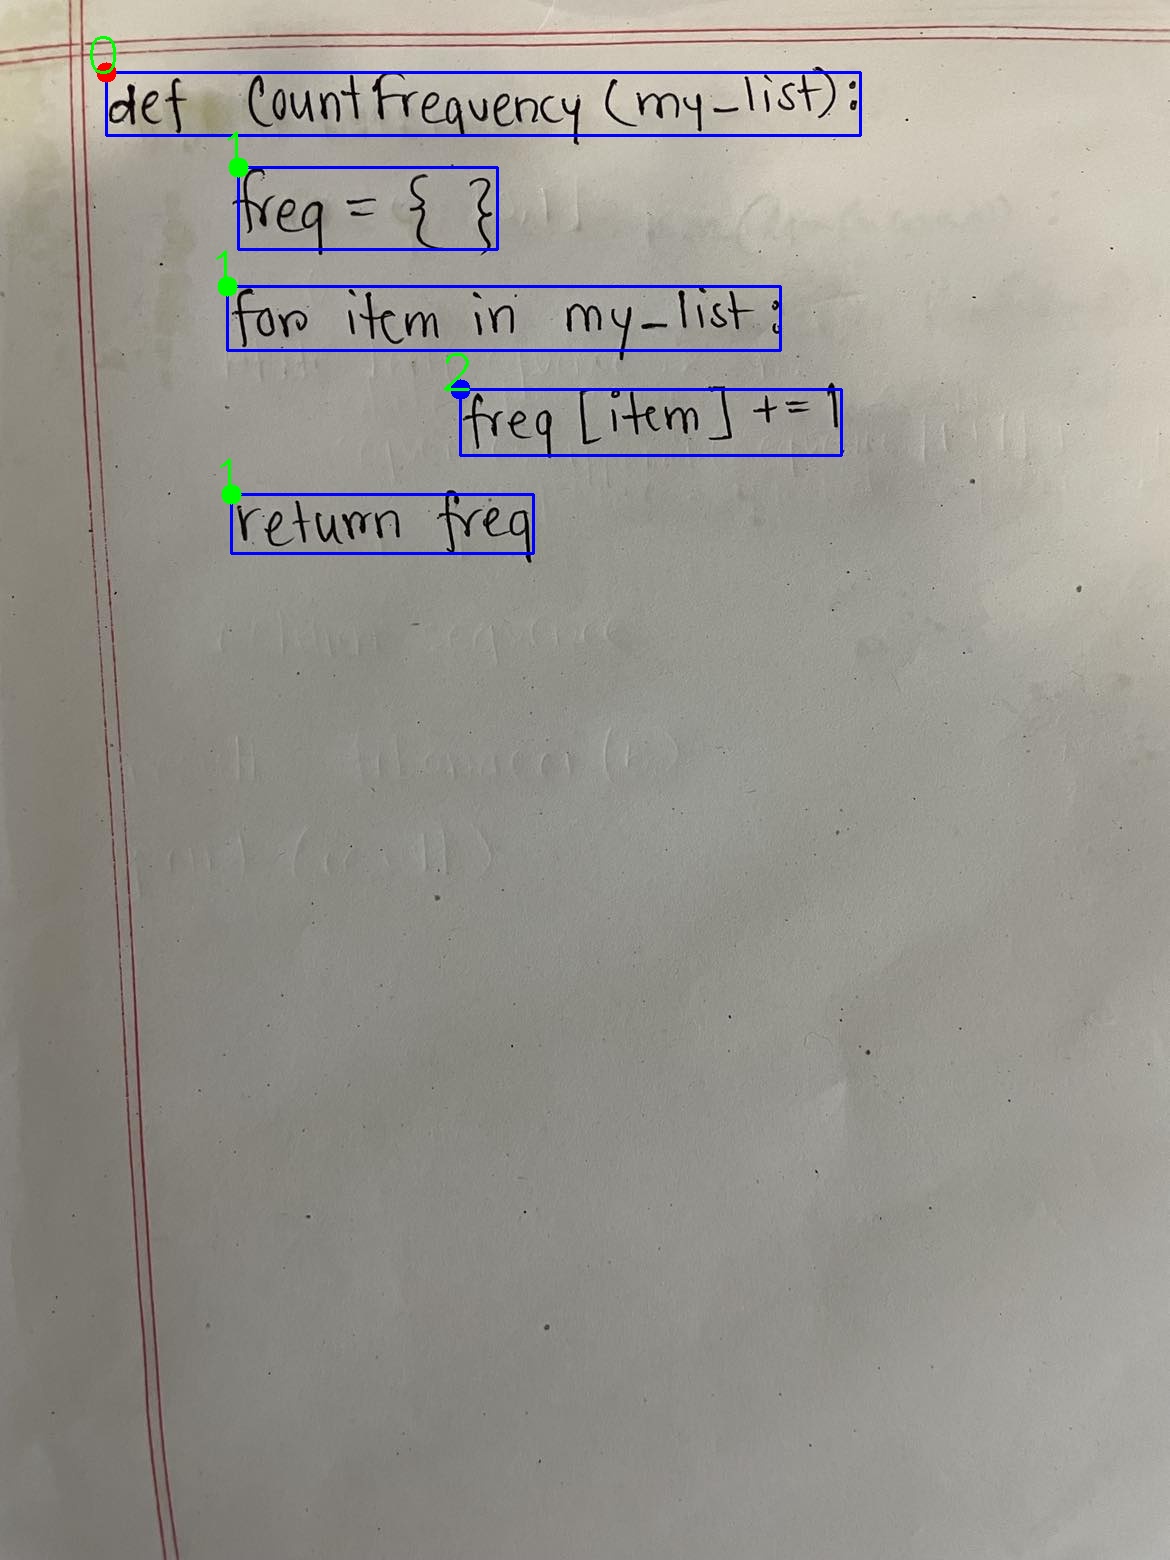 0
def CountFrequency (my_list):
1
freq = { }
1
for item in my_list:
2
freq [item] += 1
1
return freq